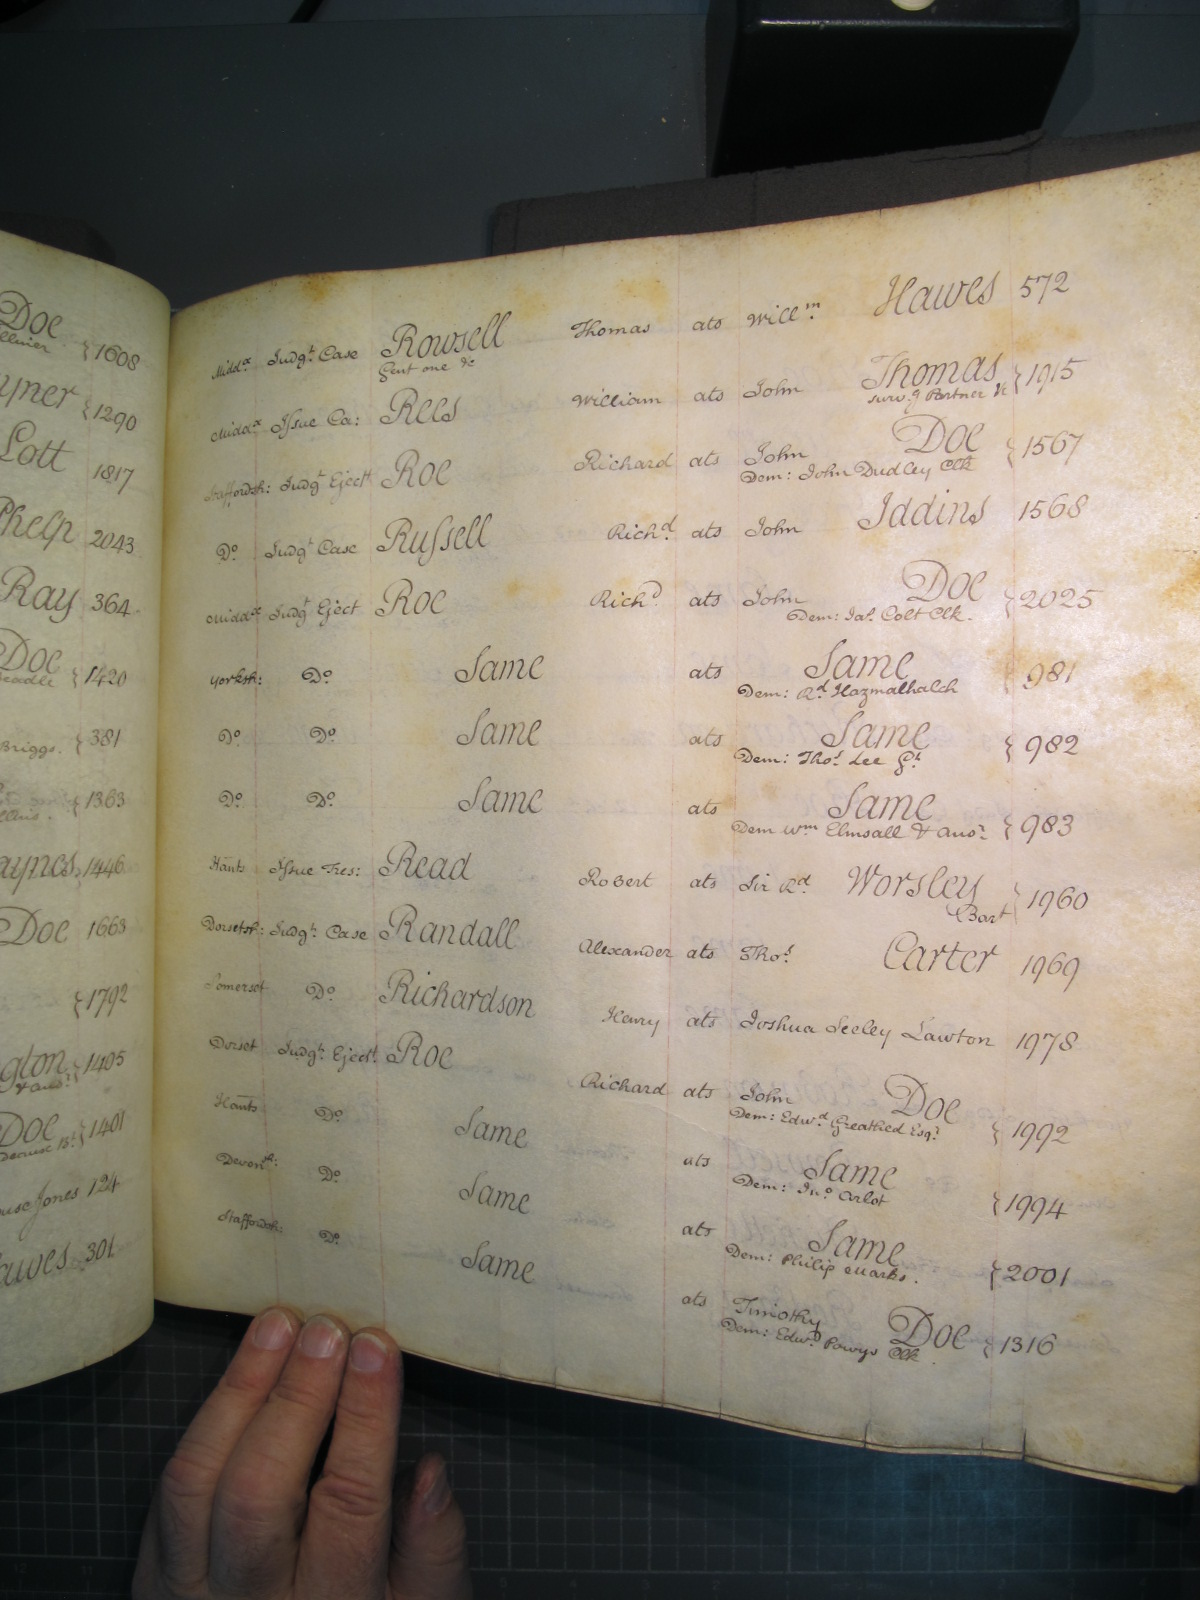 Doe
1608
yner 1290
Lott 1817
Phelp 2043
Ray 364
Doe
1420
Briggs. 381
1363
aynes 1446
Doe 1663
1792
gton 1405
& anor
Doe 1401
Jones 124
awes 301
Middx Judgt. Case Rowsell Thomas ats Willm. Hawes 572
Gent one &c
Middx Issue Ca: Rees William ats John Thomas 1915
surv. g Partner &c
Staffordsh: Judgt Ejectt Roe Richard ats John Doe 1567
Dem: John Dudley Clk
Do. Judgt Case Russell Richd. ats John Iddins 1568
Middx Judgt Eject Roe Richd. ats John Doe 2025
Dem: Jas. Colt Clk.
Yorksh: Do. Same ats Same 981
Dem: Rd. Hazmalhalch
Do. Do. Same ats Same 982
Dem: Thos. Lee Gt.
Do. Do. Same ats Same 983
Dem Wm Elmsall & anor.
Hants Issue Tres: Read Robert ats Sir Rd. Worsley 1960
Bart
Dorsetsh: Judgt. Case Randall Alexander ats Thos. Carter 1969
Somerset Do. Richardson Henry ats Joshua Seeley Lawton 1978
Dorset Judgt. Ejectt. Roe Richard ats John Doe 1992
Dem: Edwd. Greathed Esqr.
Hants Do. Same ats Same 1994
Dem: Jno. Arlot
Devonsh: Do. Same ats Same 2001
Dem: Philip Marks.
Staffordsh: Do. Same ats Timothy Doe 1316
Dem: Edwd. Powys Clk.